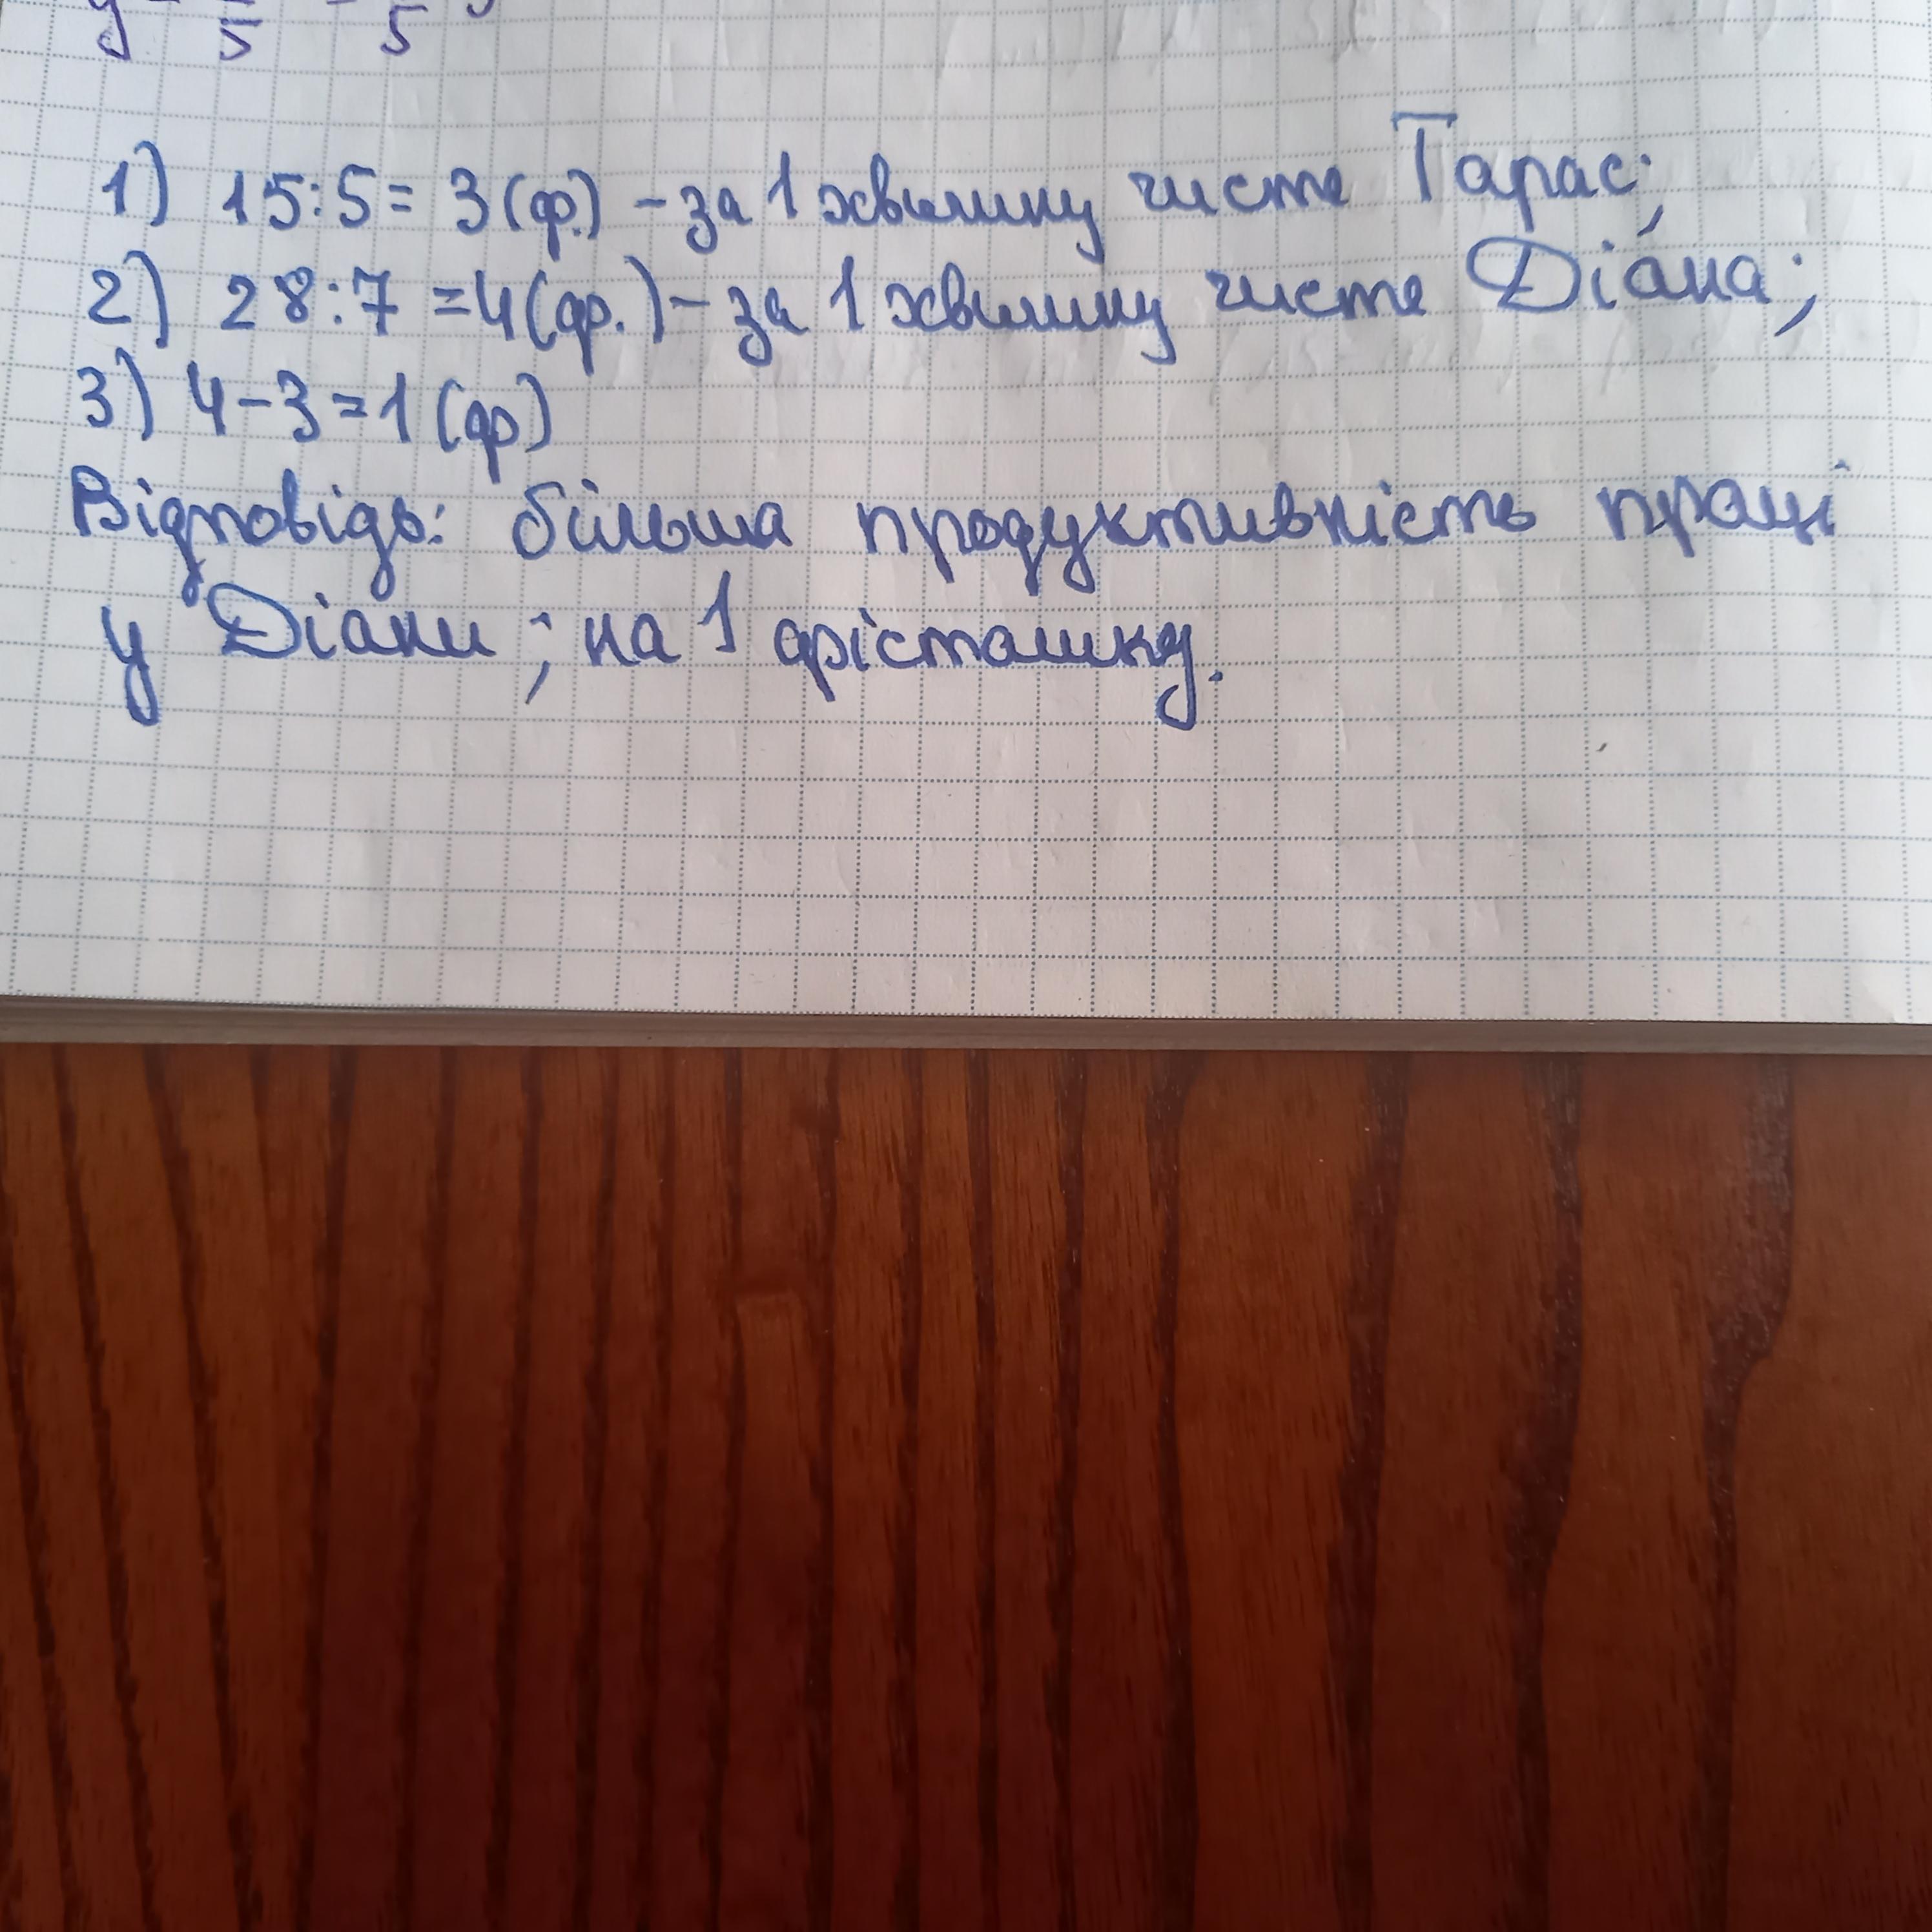 1) 15:5= 3(ф.) – за 1 хвилину чисте Тарас;
2) 28:7 =4(ф.) – за 1 хвилину чисте Діа́на;
3) 4-3=1 (ф)
Відповідь: більша продуктивність праці
у Діани ; на 1 фісташку.